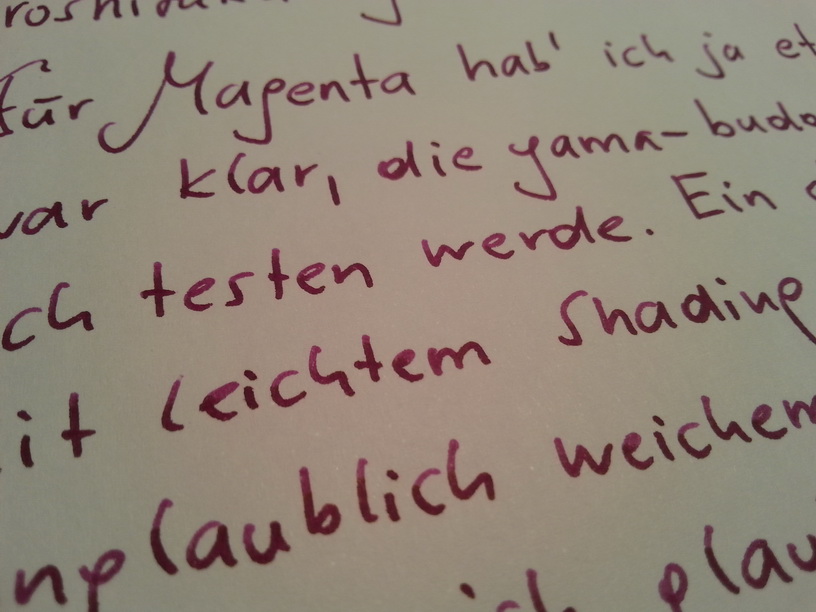 roshizuku
für Magenta hab' ich ja et
war klar, die yama-budo
ch testen werde. Ein
it leichtem Shading
nglaublich weichem
ich glau